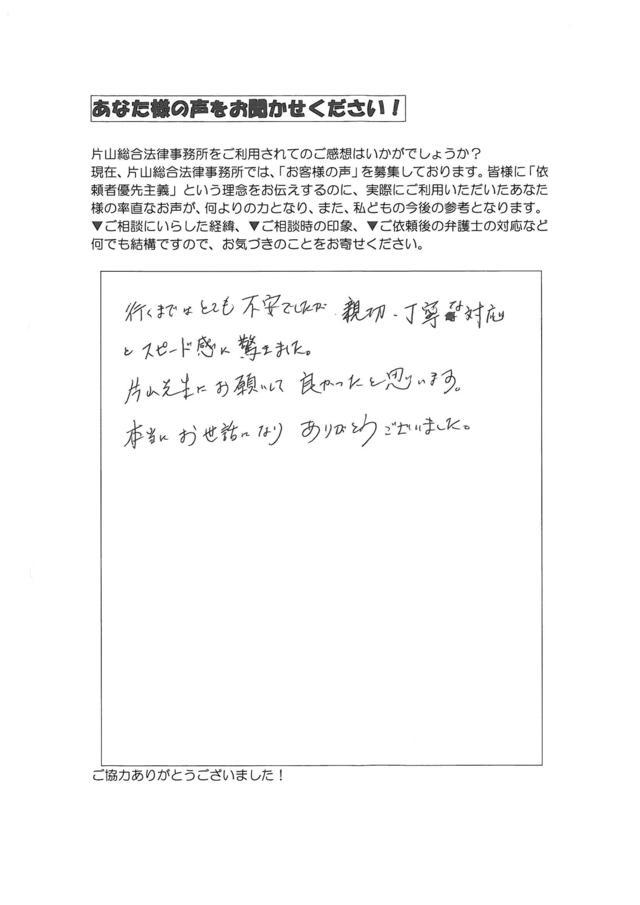 あなた様の声をお聞かせください!
片山総合法律事務所をご利用されてのご感想はいかがでしょうか?
現在、片山総合法律事務所では、「お客様の声」を募集しております。皆様に「依
頼者優先主義」という理念をお伝えするのに、実際にご利用いただいたあなた
様の率直なお声が、何よりの力となり、また、私どもの今後の参考となります。
▼ご相談にいらした経緯、▼ご相談時の印象、▼ご依頼後の弁護士の対応など
何でも結構ですので、お気づきのことをお寄せください。
行くまではとても不安でしたが 親切・丁寧な対応
とスピード感に驚きました。
片山先生にお願いして良かったと思います。
本当にお世話になり ありがとうございました。
ご協力ありがとうございました!